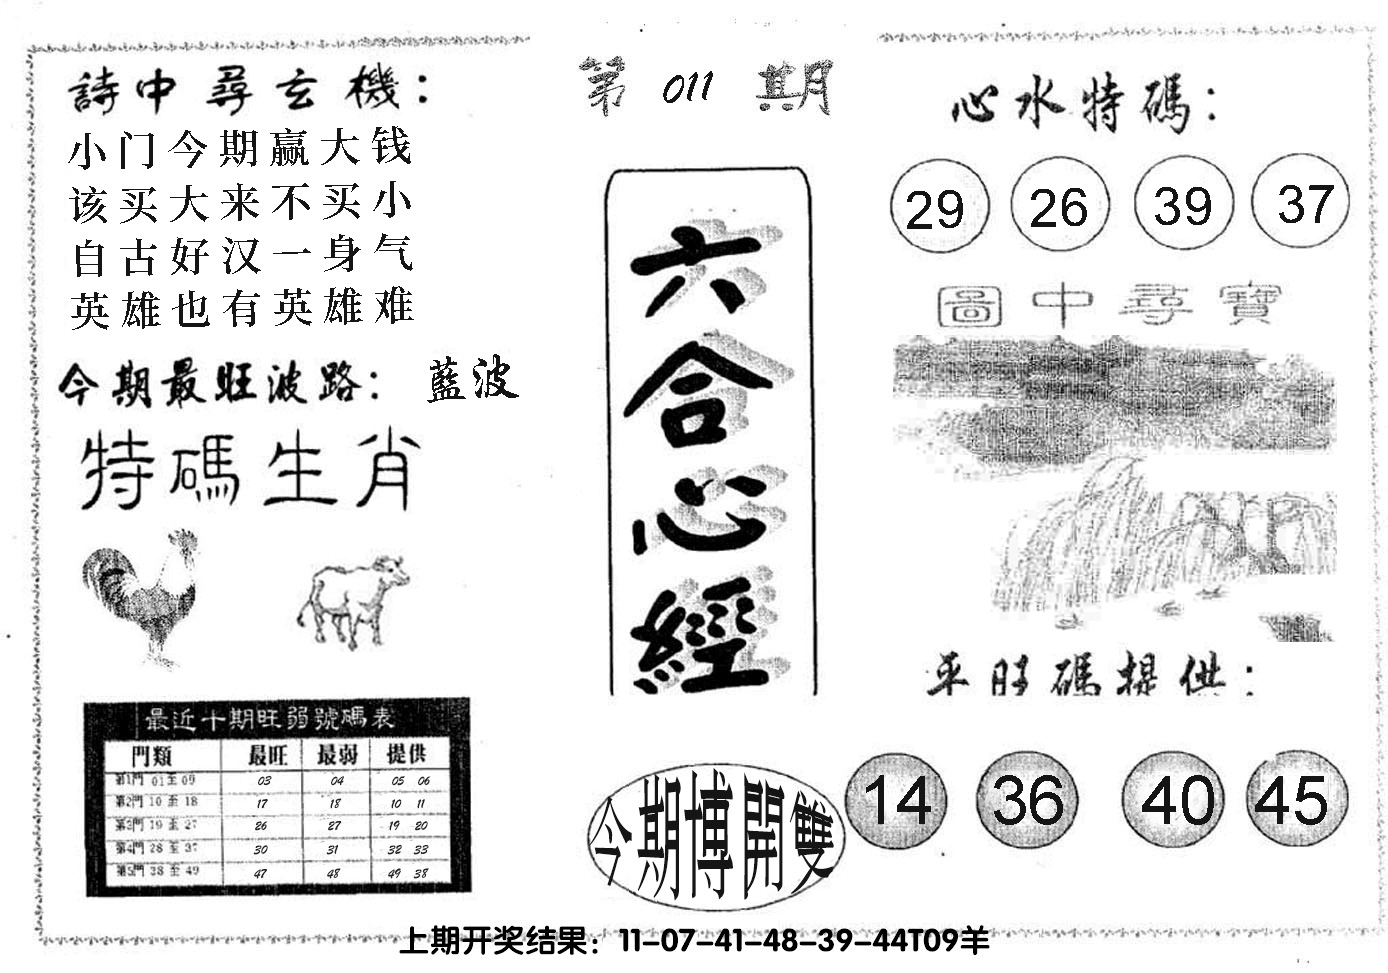 第 011 期
詩中尋玄機：
小门今期赢大钱
该买大来不买小
自古好汉一身气
英雄也有英雄难
今期最旺波路： 藍波
特碼生肖
最近十期旺弱號碼表
門類 最旺 最弱 提供
第1門 01至09 03 04 05 06
第2門 10至18 17 18 10 11
第3門 19至27 26 27 19 20
第4門 28至37 30 31 32 33
第5門 38至49 47 48 49 38
六合心經
今期博開雙
心水特碼：
29 26 39 37
圖中尋寶
平旺碼提供：
14 36 40 45
上期开奖结果：11-07-41-48-39-44T09羊